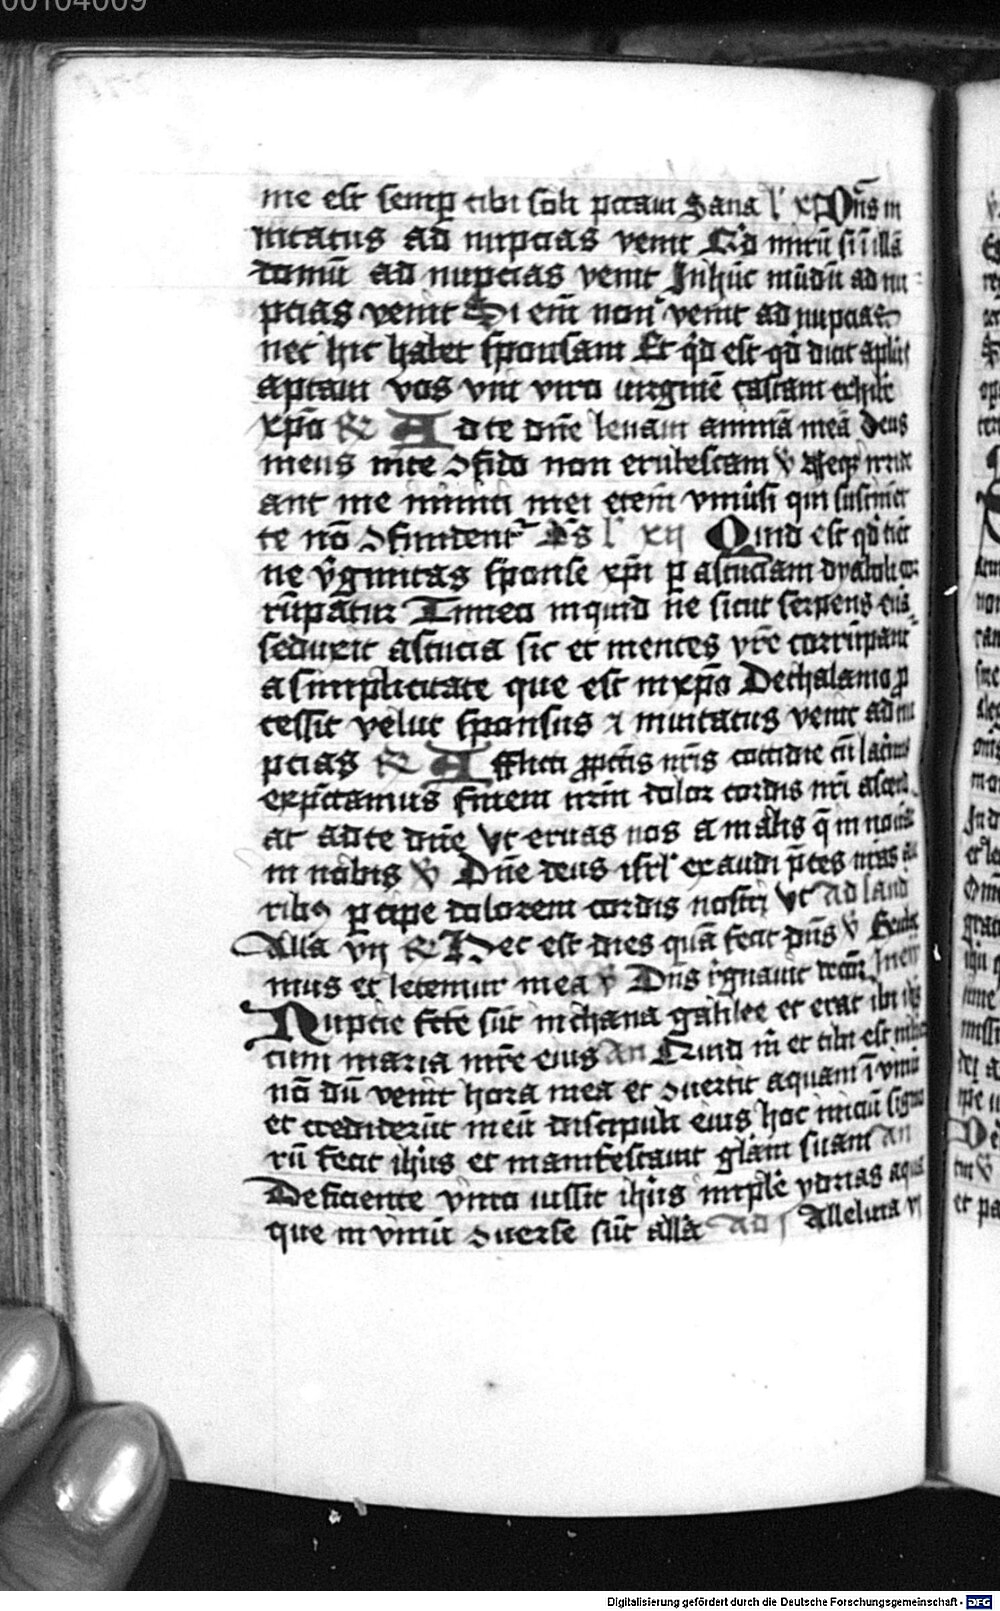 00104009
me est semp tibi soli pccaui Sana l' xi Dn̄s in
uitatus ad nupcias venit Qd mirū si ī illā
domū ad nupcias venit In hūc mūdū ad nu
pcias venit Si em̄ non venit ad nupcias
nec hic habet sponsam Et qd est qd dicit aplūs
aptaui vos vni viro uirginē castam exhibe
xp̄o R Ad te dn̄e leuaui animā meā deus
meus in te ɔfido non erubescam V Neq irride
ant me inimici mei eten̄i vniūsi qui sustinet
te nō ɔfundent' Ps l' xii Quid est qd timet
ne v̄ginitas sponse xp̄i p astuciam dyaboli cor
rūpatur Timeo inquid ne sicut serpens euā
seduxit astucia sic et mentes vr̄e corrūpant'
a simplicitate que est in xp̄o De thalamo p
cessit velut sponsus ⁊ inuitatus venit ad nu
pcias R Afflicti p pcc̄is nr̄is cottidie cū lacimis
expectamus finem nr̄m dolor cordis nr̄i ascend
at ad te dn̄e Vt eruas nos a malis q̄ in nouāt
in nobis V Dn̄e deus isrl' exaudi p̄ces nr̄as au
ribꝫ pcipe dolorem cordis nostri Vt Ad laud
Alla vij R Hec est dies quā fecit dn̄s V Exulte
mus et letemur in ea V Dn̄s r̄gnauit decorē In eu
Nupcie fc̄e sūt in chana galilee et erat ibi ihs
cum maria mr̄e eius An Quid m̄ et tibi est mulier
nō dū venit hora mea et ɔuertit aquam ī vinū
et crediderūt in eū discipuli eius hoc iniciū signo
rū fecit ihūs et manifestauit gl̄am suam An
Deficiente vino iussit ihūs imple ydrias aqua
que in vinū ɔuerse sūt alla Ad j Alleluia vj
Digitalisierung gefördert durch die Deutsche Forschungsgemeinschaft - DFG